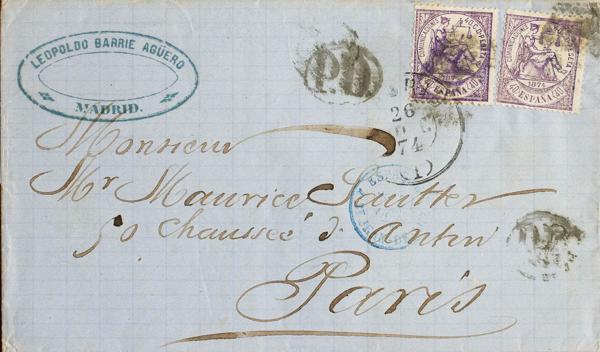 LEOPOLDO BARRIE AGÜERO
MADRID.
P.D.
COMUNICACIONES 40 C. DE PESETA
1874
40 ESPAÑA 40
1874
40 ESPAÑA 40
26
74
(1)
Monsieur
Mr Maurice Sautter
50 chaussée d'Antin
Paris